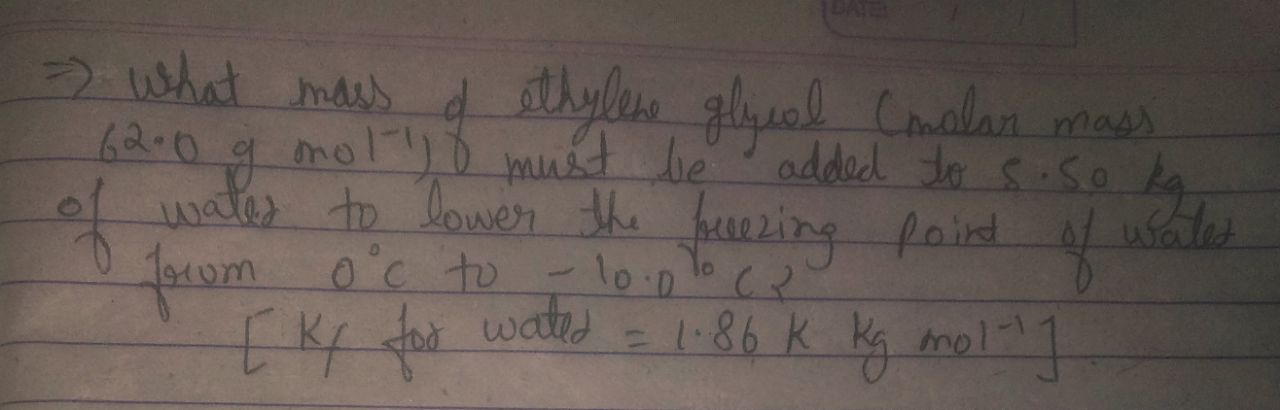 DATE:
⇒ What mass of ethylene glycol (molar mass
62.0 g mol⁻¹) must be added to 5.50 kg
of water to lower the freezing point of water
from 0°C to -10.0°C?
[Kf for water = 1.86 K kg mol⁻¹].